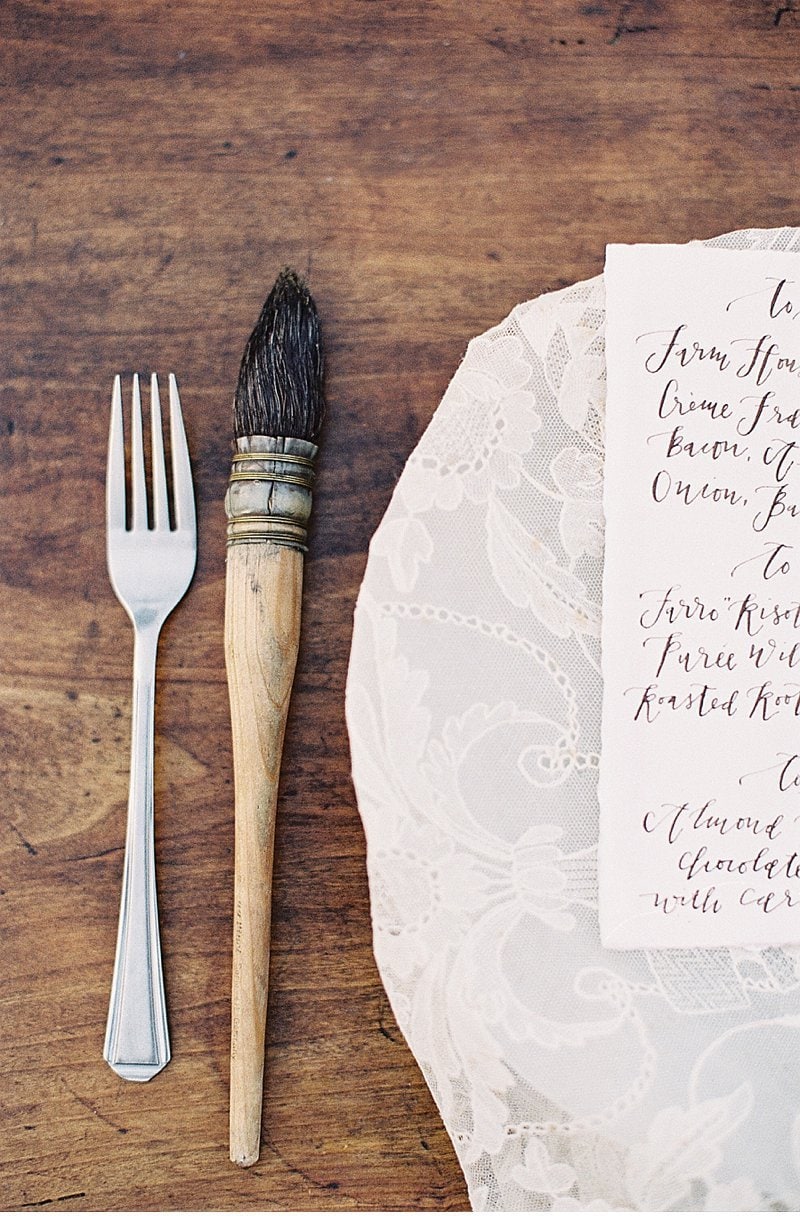 to
Farm Hou
Crème Fra
Bacon, A
Onion, Ba
to
"Farro" Risot
Purée Wil
Roasted Root
to
Almond
Chocolate
with Car